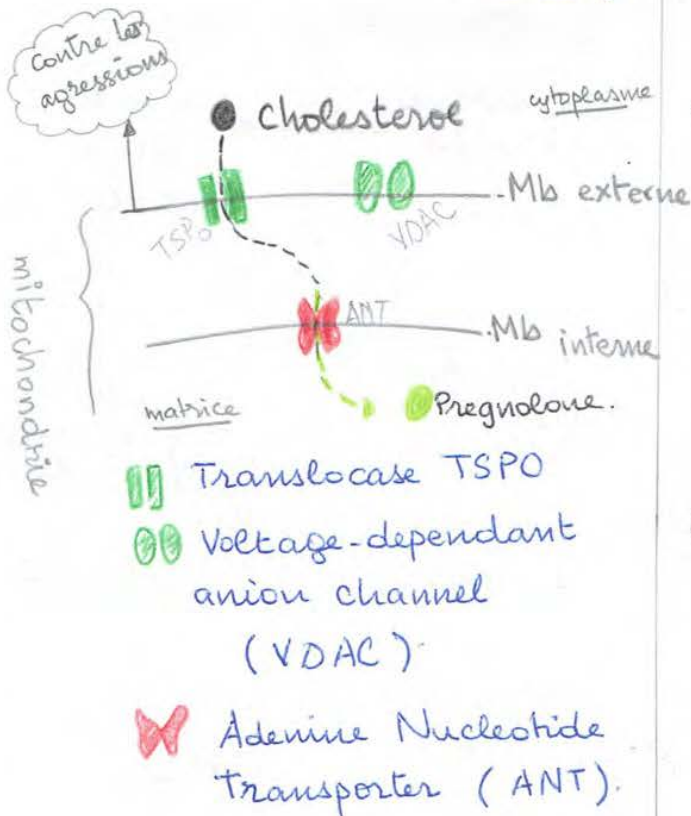 contre les
agressions
Cholesterol
cytoplasme
Mb externe
TSPO
VDAC
mitochondrie
ANT
Mb interne
matrice
Pregnolone.
Translocase TSPO
Voltage-dependant
anion channel
(VDAC)
Adenine Nucleotide
Transporter (ANT).